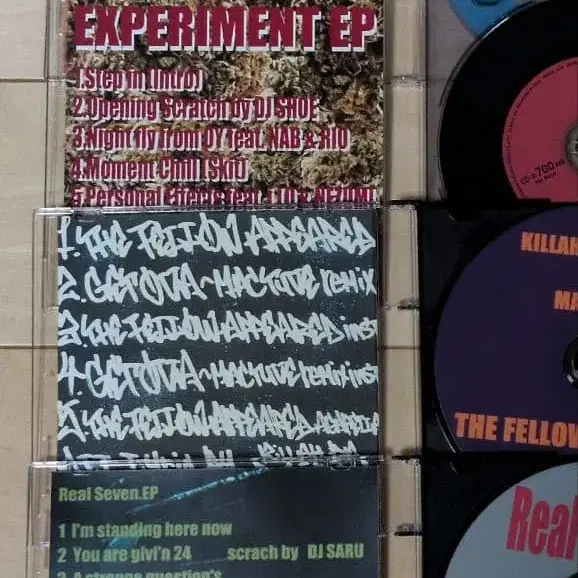 EXPERIMENT EP
1.Step in [Intro]
2.Opening Scratch by DJ SHOE
3.Night fly from OY feat. NAB & RIO
4.Moment Chill [Skit]
5.Personal Effects feat.
1. THE FELLOW APPEARED
2. GET OUTA~MACTIVE remix
3. THE FELLOW APPEARED inst
4. GET OUTA~MACTIVE remix inst
5. THE FELLOW APPEARED
Real Seven.EP
1 I'm standing here now
2 You are givi'n 24 scrach by DJ SARU
3 A strange question's
CD-R 700 MB
KILLAH
MA
THE FELLOW
Real